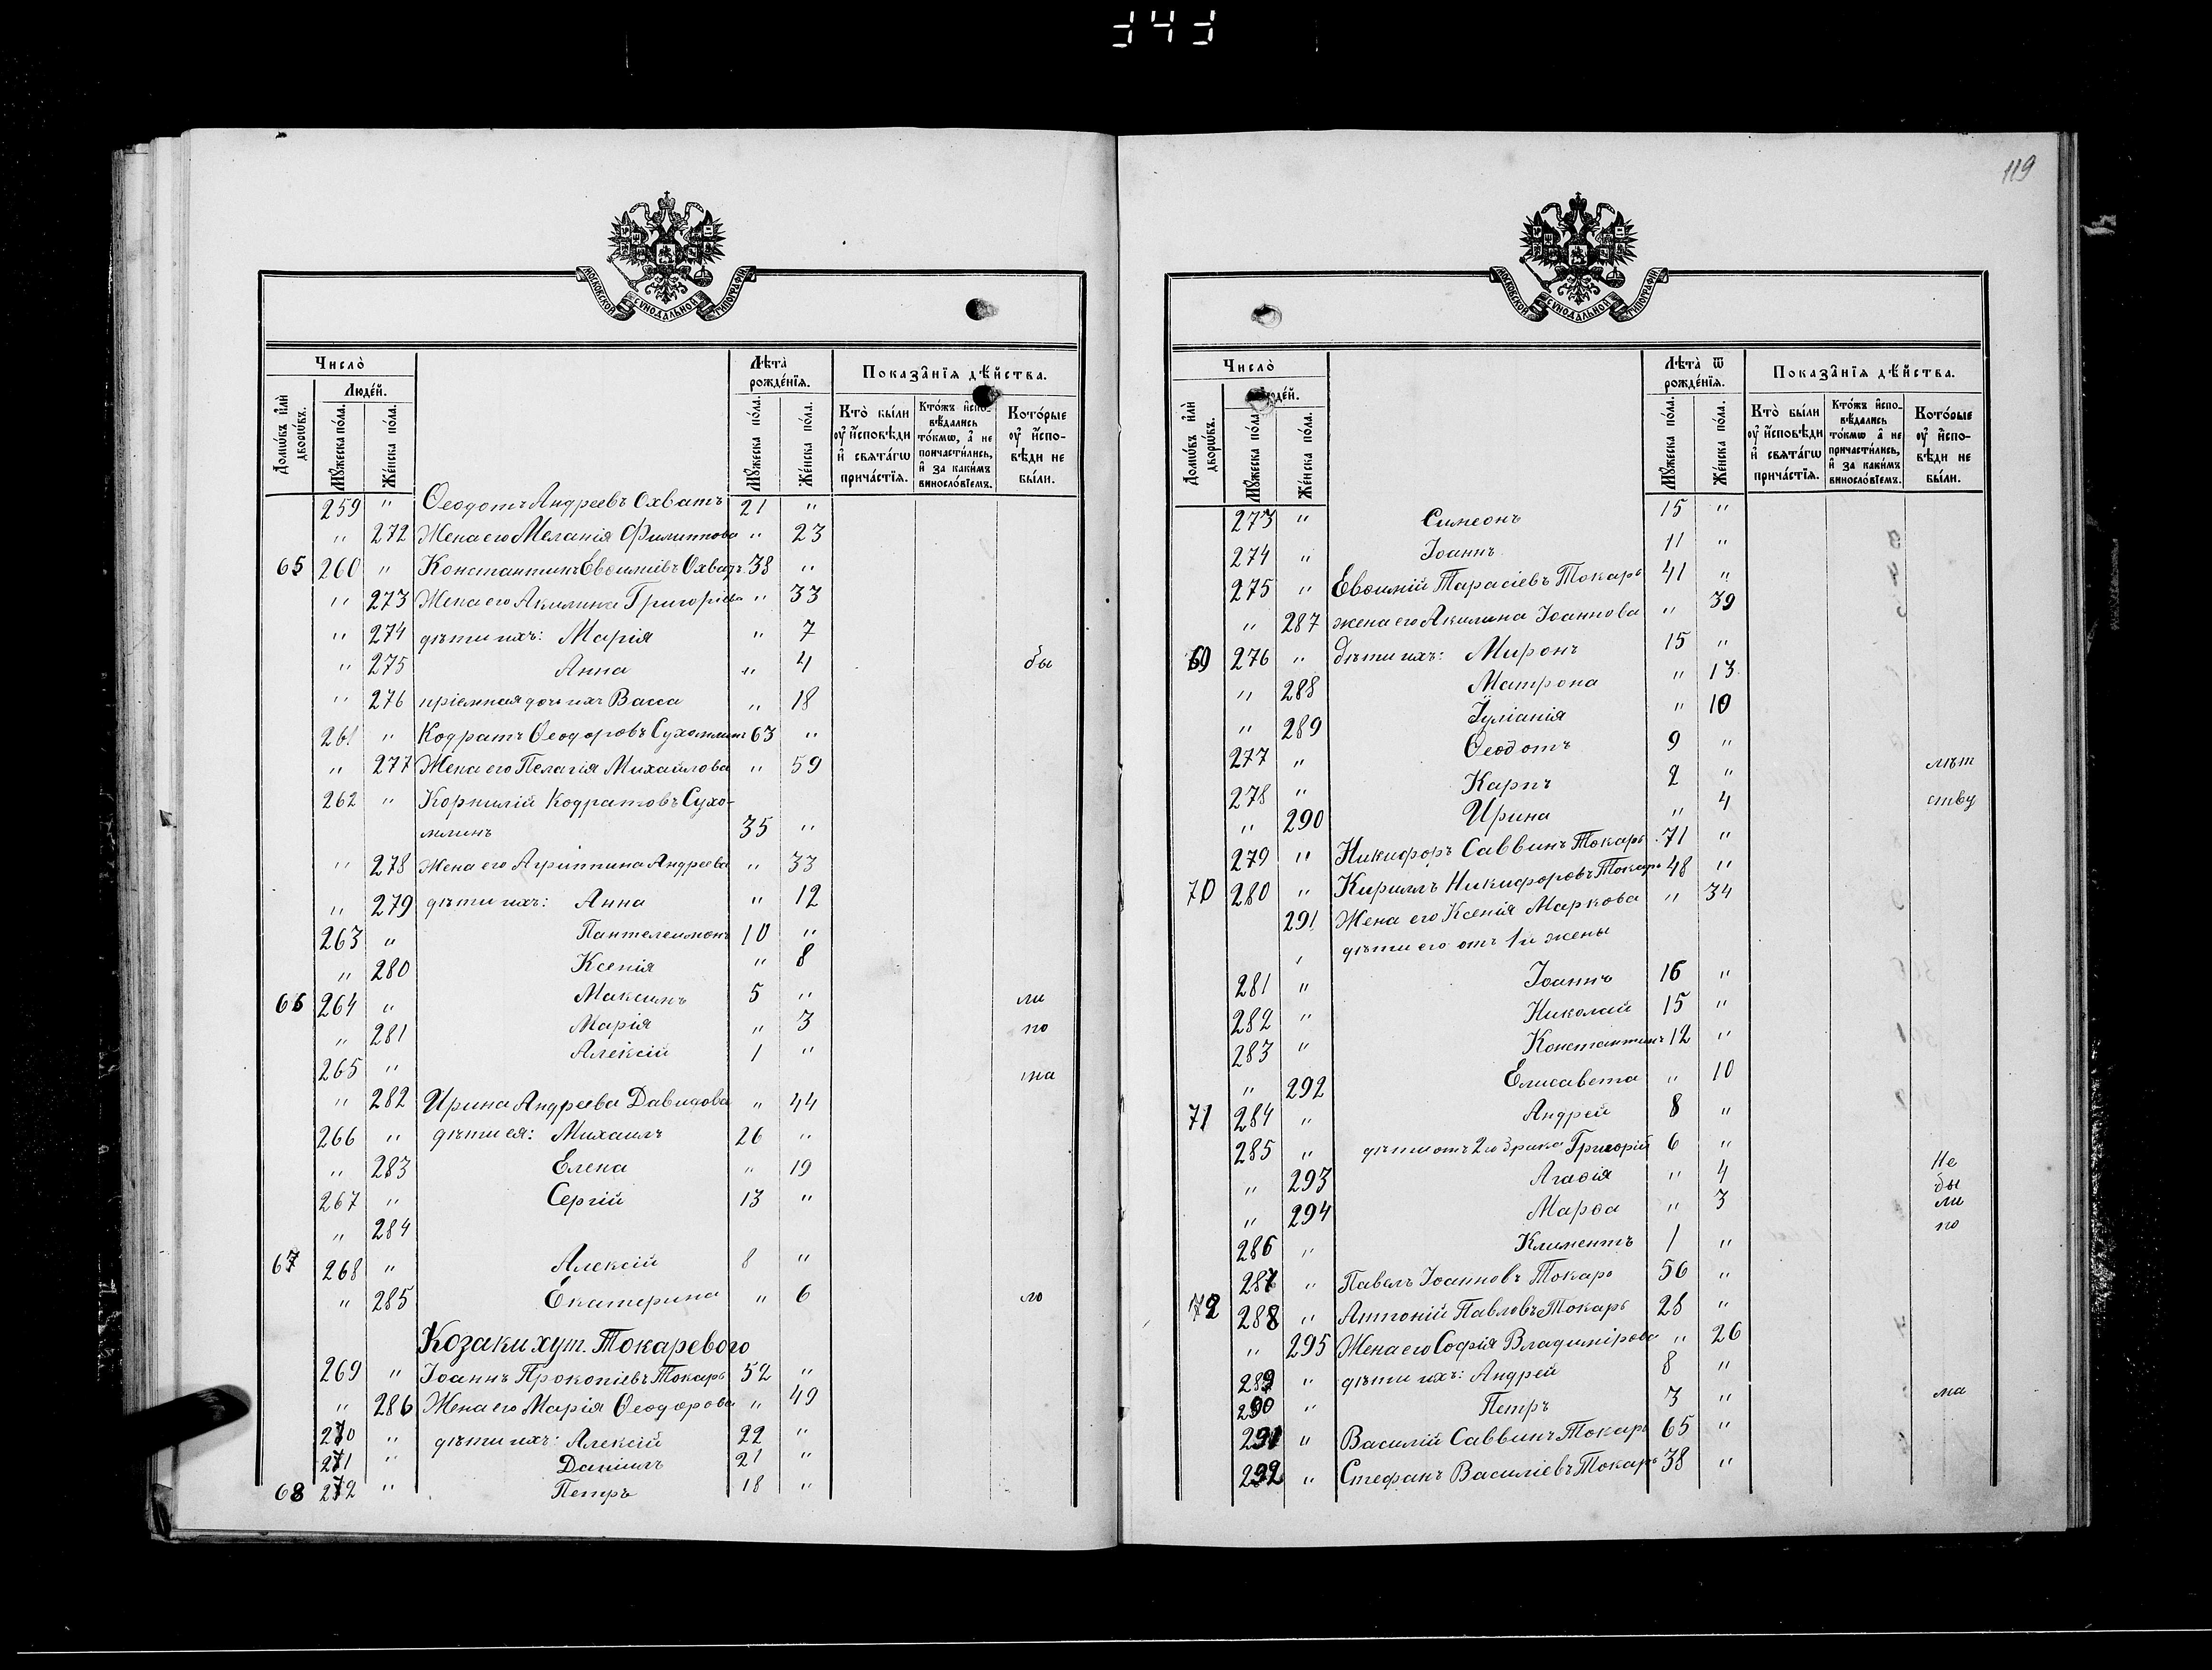 343
МОСКОВСКОЙ СУНОДАЛЬНОЙ ТИПОГРАФІИ
Число̀
Лѣта̀ рожде́нїѧ.
Показа̑нїѧ дѣ́йства.
Домѡ́въ и҆лѝ дворѡ́въ.
Люде́й.
Мꙋ́жеска по́ла.
Же́нска по́ла.
Мꙋ́жеска по́ла.
Же́нска по́ла.
Кто̀ бы́ли ᲂу҆ и҆сповѣ́ди и҆ свѧта́гѡ прича́стїѧ.
Кто́жъ и҆сповѣ́дались то́кмѡ, а҆ не причасти́лись, и҆ за каки́мъ виносло́вїемъ.
Кото́рые ᲂу҆ и҆сповѣ́ди не бы́ли.
259 " Ѳеодотъ Андреевъ Охватъ 21 "
" 272 Жена его Меланія Филиппова " 23
65 260 " Константинъ Евѳиміевъ Охватъ 38 "
" 273 Жена его Акилина Григоріева " 33
" 274 дѣти ихъ: Марія " 7
" 275 Анна " 4 бы
" 276 пріемная дочь ихъ Васса " 18
261 " Кодратъ Ѳеодоровъ Сухомлинъ 63 "
" 277 Жена его Пелагія Михайлова " 59
262 " Корнилій Кодратовъ Сухо-
млинъ 35 "
" 278 Жена его Агриппина Андреева " 33
" 279 дѣти ихъ: Анна " 12
263 " Пантелеимонъ 10 "
" 280 Ксенія " 8
66 264 " Максимъ 5 " ли
" 281 Марія " 3 по
265 " Алексій 1 "
" 282 Ирина Андреева Давидова " 44
266 " дѣти ея: Михаилъ 26 "
" 283 Елена " 19
267 " Сергій 13 "
" 284
67 268 " Алексій 8 "
" 285 Екатерина " 6 ло
Козаки хут. Токаревого
269 " Іоаннъ Прокопіевъ Токарь 52 "
" 286 Жена его Марія Ѳеодорова " 49
270 " дѣти ихъ: Алексій 22 "
271 " Даніилъ 21 "
68 272 " Петръ 18 "
119
МОСКОВСКОЙ СУНОДАЛЬНОЙ ТИПОГРАФІИ
Число̀
Лѣта̀ ѿ рожде́нїѧ.
Показа̑нїѧ дѣ́йства.
Домѡ́въ и҆лѝ дворѡ́въ.
Люде́й.
Мꙋ́жеска по́ла.
Же́нска по́ла.
Мꙋ́жеска по́ла.
Же́нска по́ла.
Кто̀ бы́ли ᲂу҆ и҆сповѣ́ди и҆ свѧта́гѡ прича́стїѧ.
Кто́жъ и҆сповѣ́дались то́кмѡ а҆ не причасти́лись, и҆ за каки́мъ виносло́вїемъ.
Кото́рые ᲂу҆ и҆сповѣ́ди не бы́ли.
273 " Симеонъ 15 "
274 " Іоаннъ 11 "
275 " Евѳимій Тарасіевъ Токарь 41 "
" 287 жена его Акилина Іоаннова " 39
69 276 " дѣти ихъ: Миронъ 15 "
" 288 Матрона " 13
" 289 Іуліанія " 10
277 " Ѳеодотъ 9 "
278 " Карпъ 2 "
" 290 Ирина " 4 ству
279 " Никифоръ Саввинъ Токарь 71 "
70 280 " Кириллъ Никифоровъ Токарь 48 "
291 Жена его Ксенія Маркова " 34
дѣти его отъ 1й жены
281 " Іоаннъ 16 "
282 " Николай 15 "
283 " Константинъ 12 "
" 292 Елисавета " 10
71 284 " Андрей 8 "
285 " дѣти отъ 2го брака Григорій 6 "
" 293 Агаѳія " 4 Не бы
" 294 Марѳа " 3 ли по
286 " Климентъ 1 "
287 " Павелъ Іоанновъ Токарь 56 "
72 288 " Антоній Павловъ Токарь 28 "
" 295 Жена его Софія Владимірова " 26
289 " дѣти ихъ: Андрей 8 "
290 " Петръ 3 "
291 " Василій Саввинъ Токарь 65 "
292 " Стефанъ Василіевъ Токарь 38 "